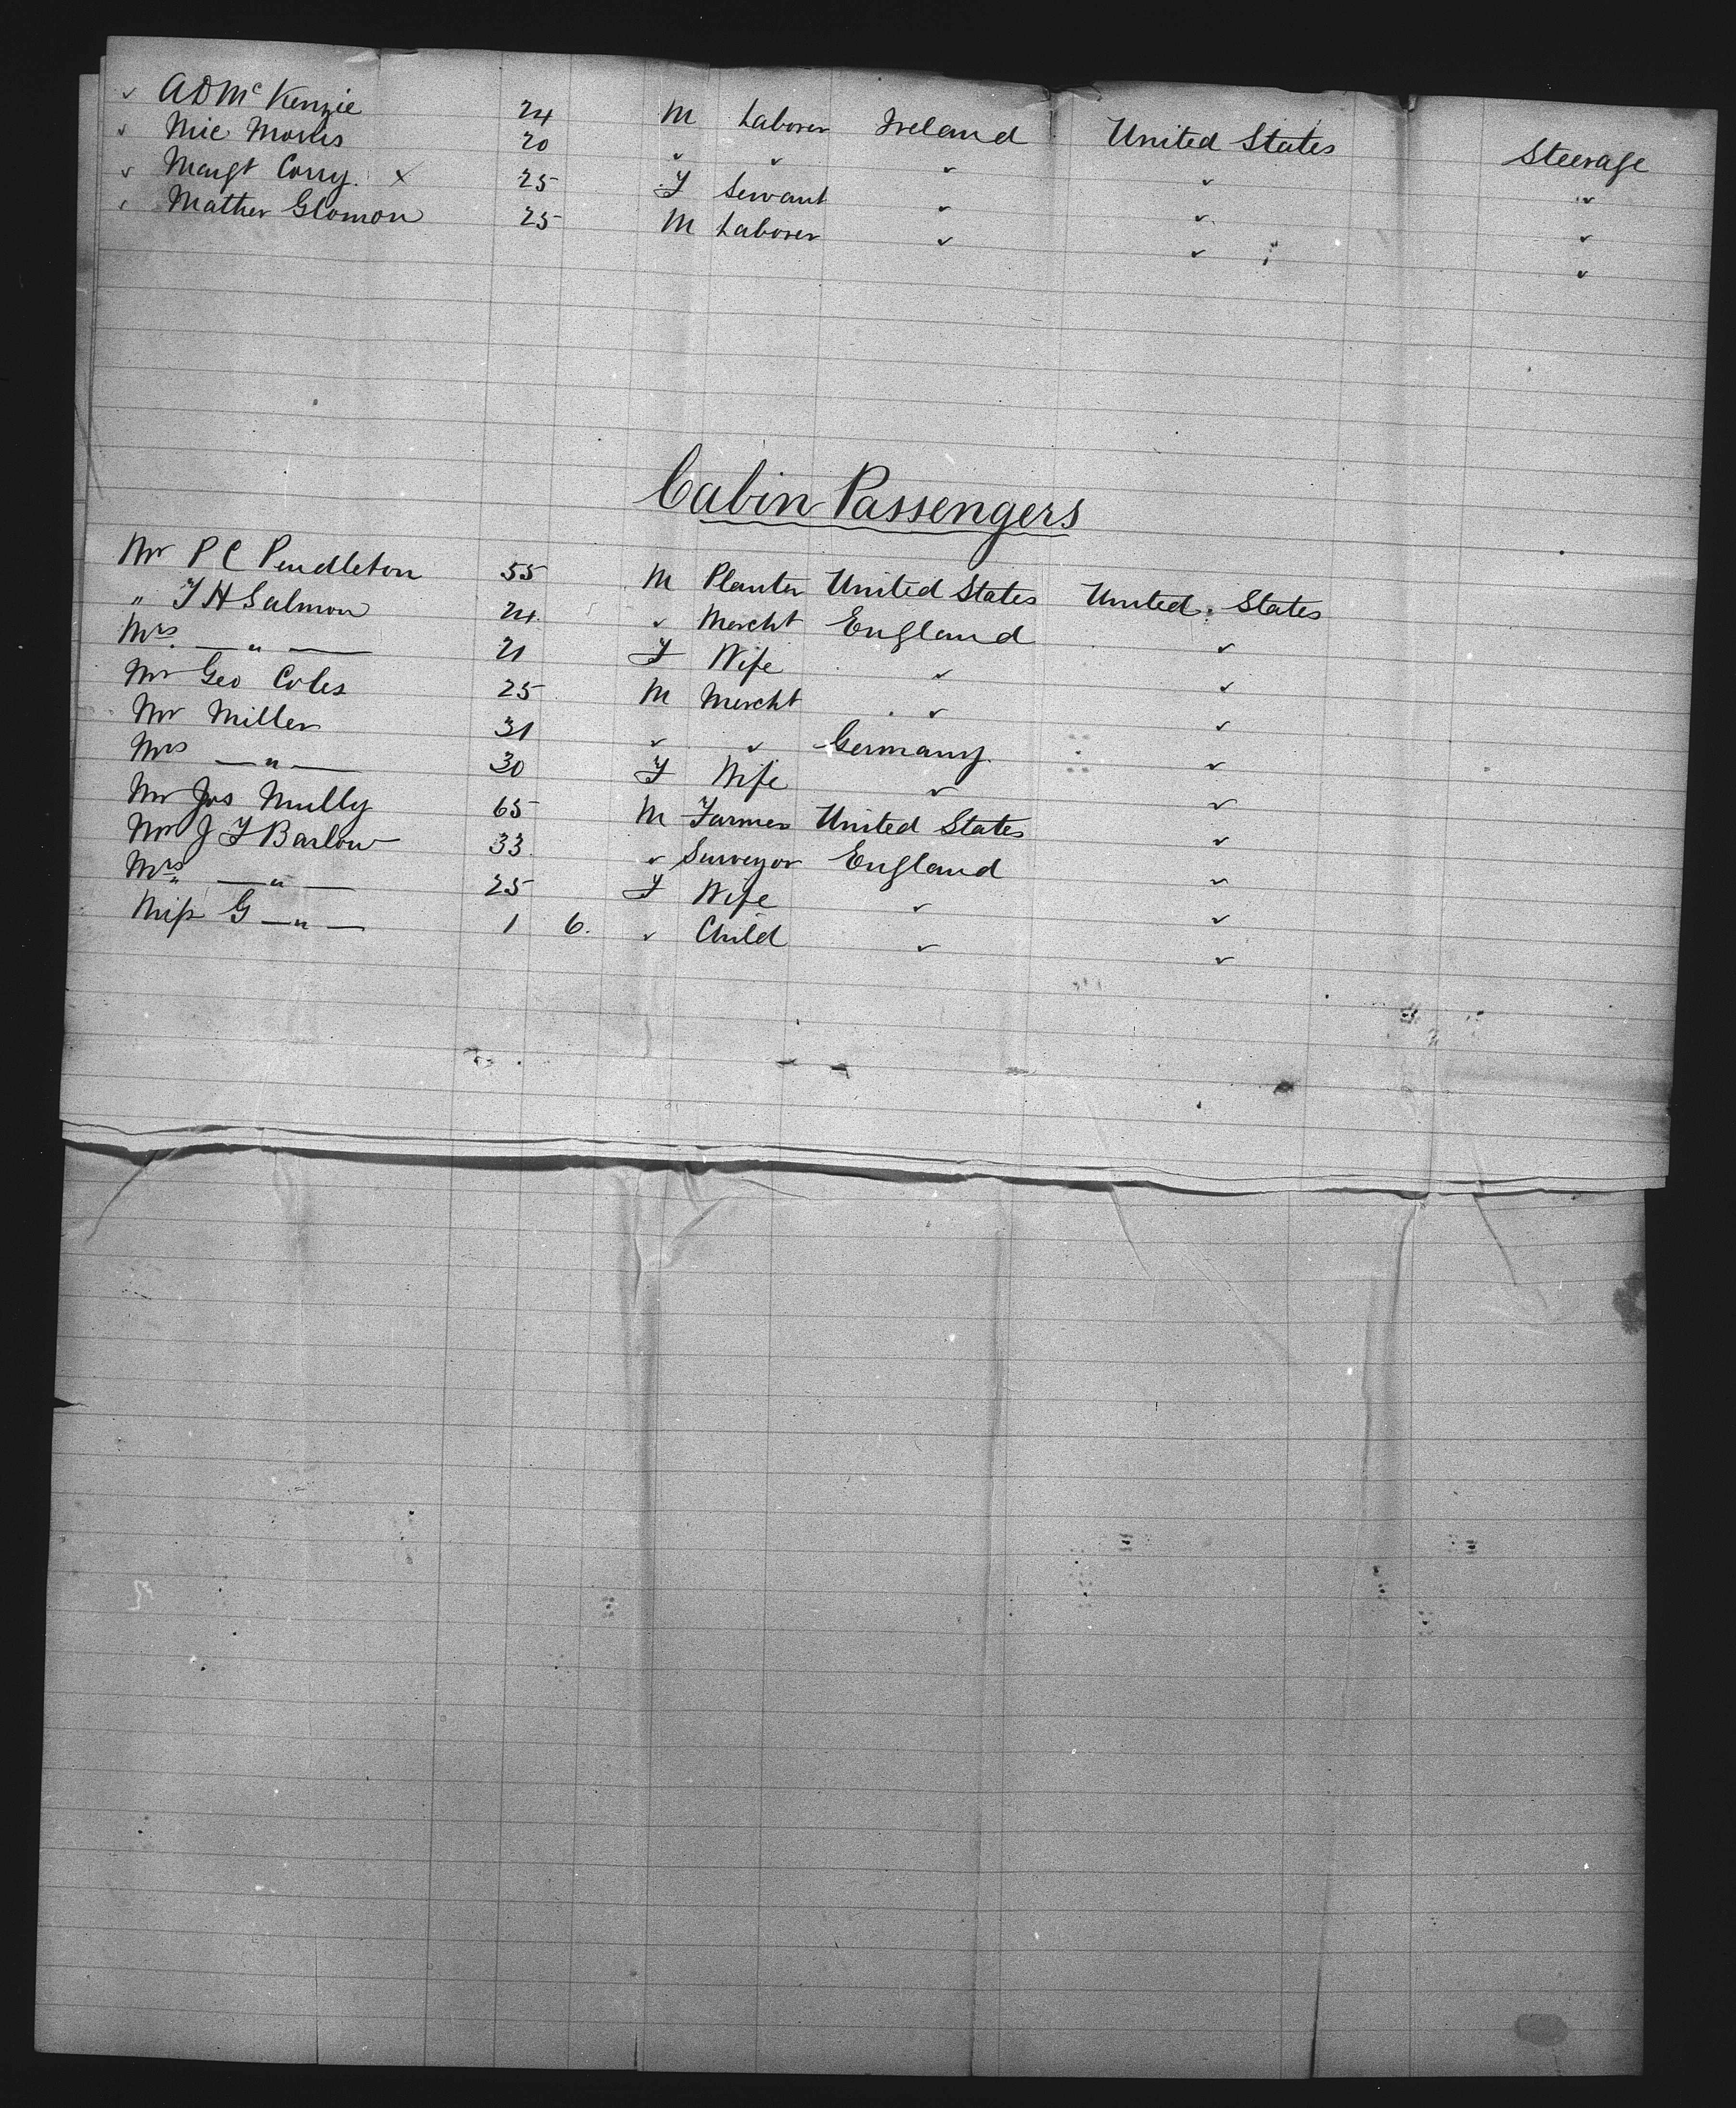 ✓ A D McKenzie 24 M Laborer Ireland United States Steerage
✓ Mic Morris 20 ✓ ✓ ✓ ✓ ✓
✓ Margt Corry. X 25 F Servant ✓ ✓ ✓
✓ Mather Glomon 25 M Laborer ✓ ✓ ✓
Cabin Passengers
Mr P C Pendleton 55 M Planter United States United States
" F H Salmon 24 ✓ Mercht England ✓
Mrs — " — 21 F Wife ✓ ✓
Mr Geo Coles 25 M Mercht ✓ ✓
Mr Miller 31 ✓ ✓ Germany ✓
Mrs — " — 30 F Wife ✓ ✓
Mr Jos Mully 65 M Farmer United States ✓
Mr J F Barlow 33 ✓ Surveyor England ✓
Mrs — " — 25 F Wife ✓ ✓
Miss G — " — 1 6. ✓ Child ✓ ✓